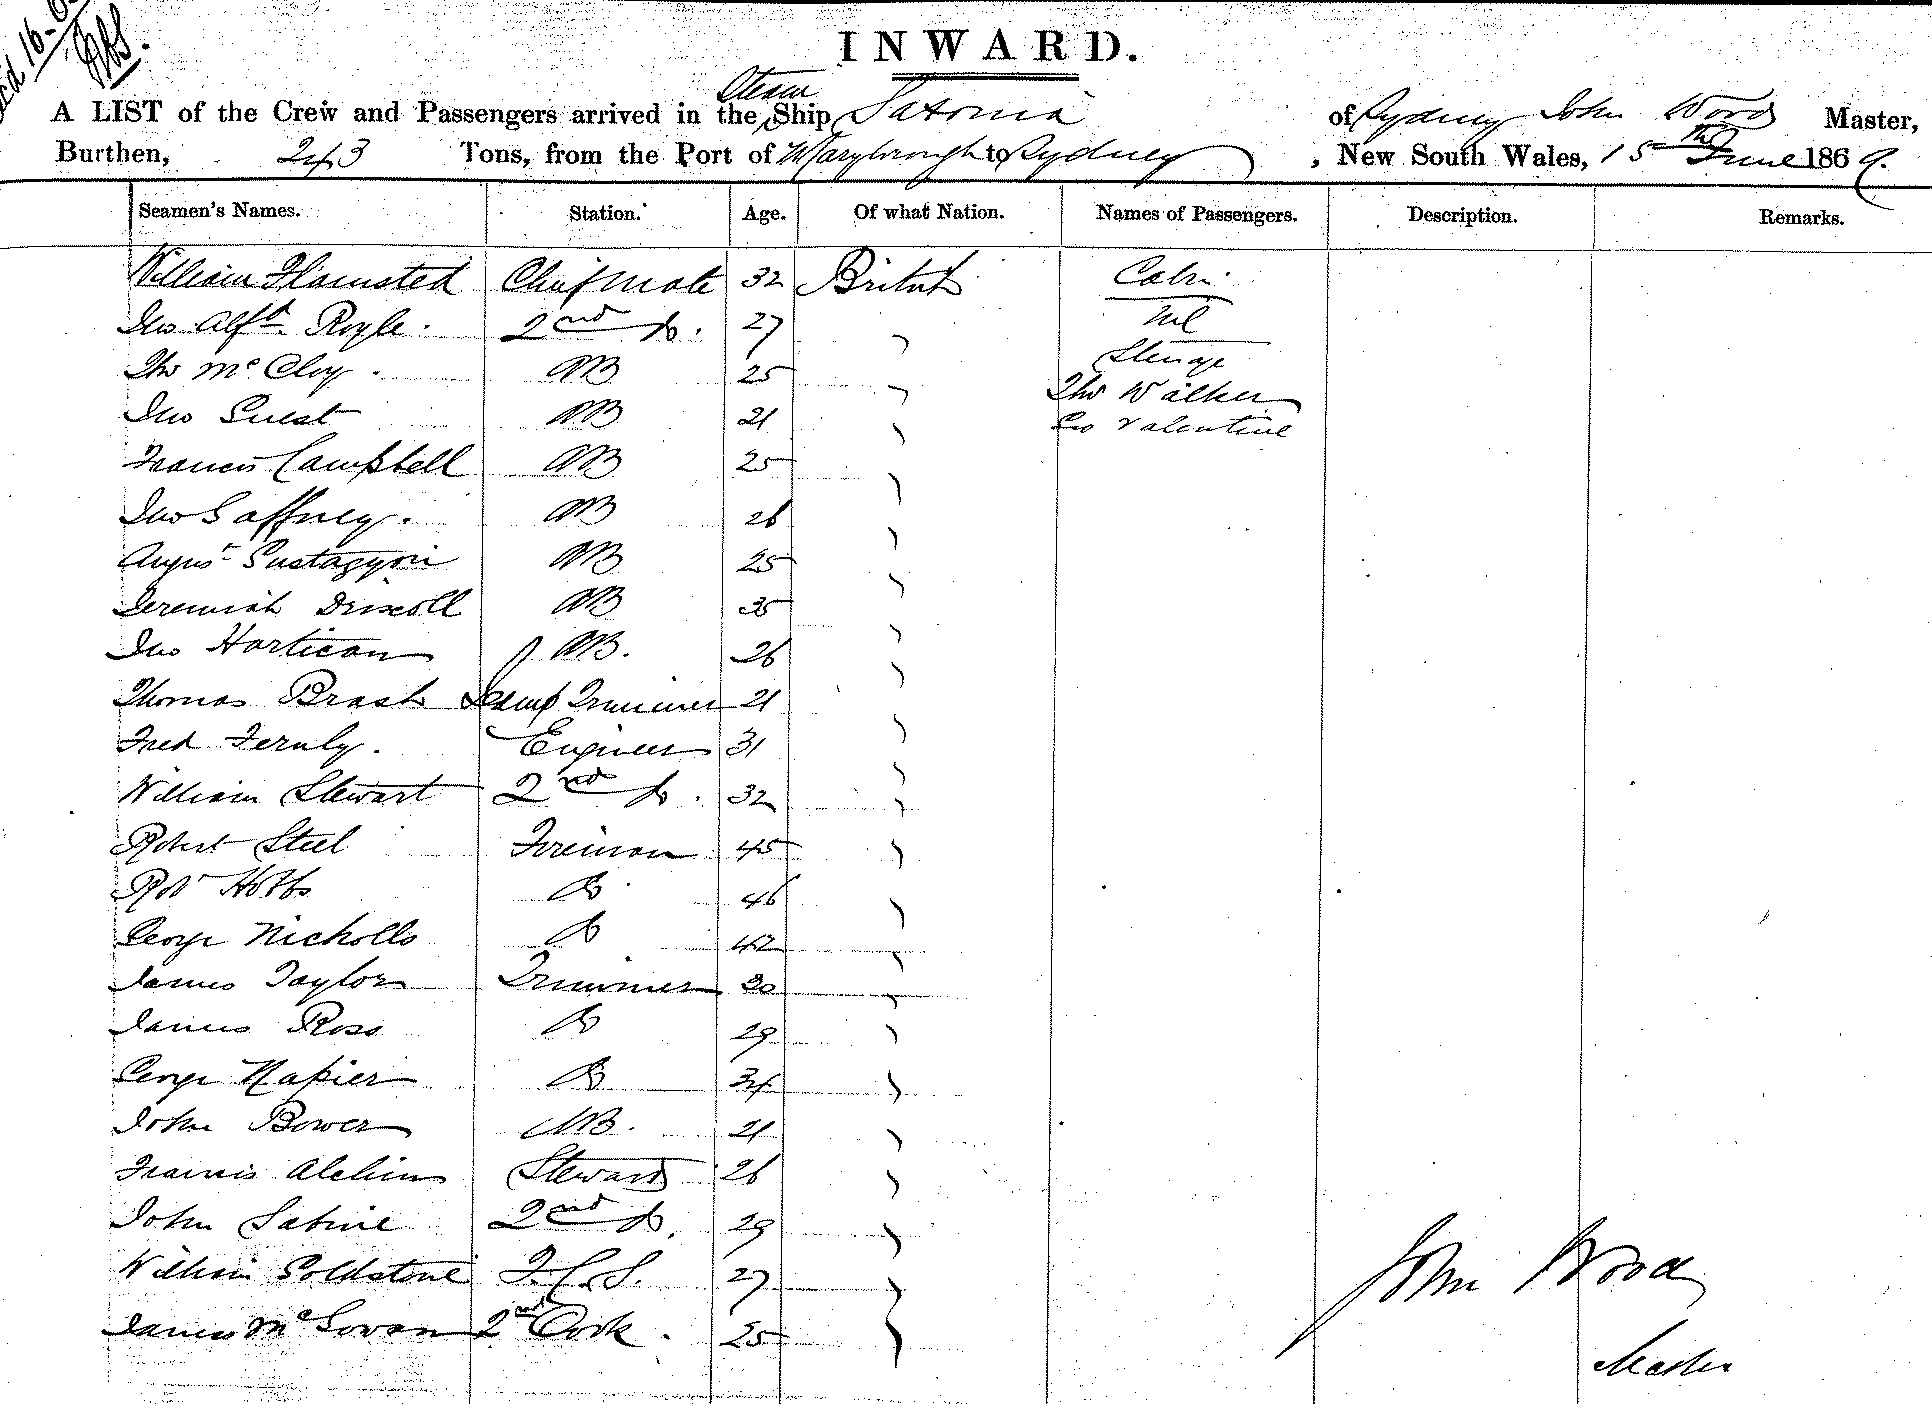 INWARD.
A LIST of the Crew and Passengers arrived in the Steam Ship Saxonia of Sydney John Wood Master,
Burthen, 243 Tons, from the Port of Maryborough to Sydney, New South Wales, 15th June 1869.
Seamen's Names. Station. Age. Of what Nation. Names of Passengers. Description. Remarks.
William Flamsted Chief Mate 32 British Cabin
Jno Alfd Royle. 2nd Do. 27 " Nil
Thos McCloy. AB 25 " Steerage
Jno Guest AB 21 " Thos Walker
Francis Campbell AB 25 " Geo Valentine
Jno Gaffney. AB 26 "
AB 25 "
Jeremiah Driscoll AB 35 "
Jno Hartican AB. 26 "
Thomas Brash Lamp Trimmer 21 "
Fred Fernly. Engineer 31 "
William Stewart 2nd Do. 32 "
Robert Steel Fireman 45 "
Robt Hobbs Do 46 "
George Nicholls Do 42 "
James Taylor Trimmer 30 "
James Ross Do 29 "
George Napier Do 34 "
John Bower AB. 21 "
Francis Steward 26 "
John Sabine 2nd Do. 29 "
William Goldstone F.C.S. 27 "
James McGowan 2nd Cook. 25 "
John Wood
Master